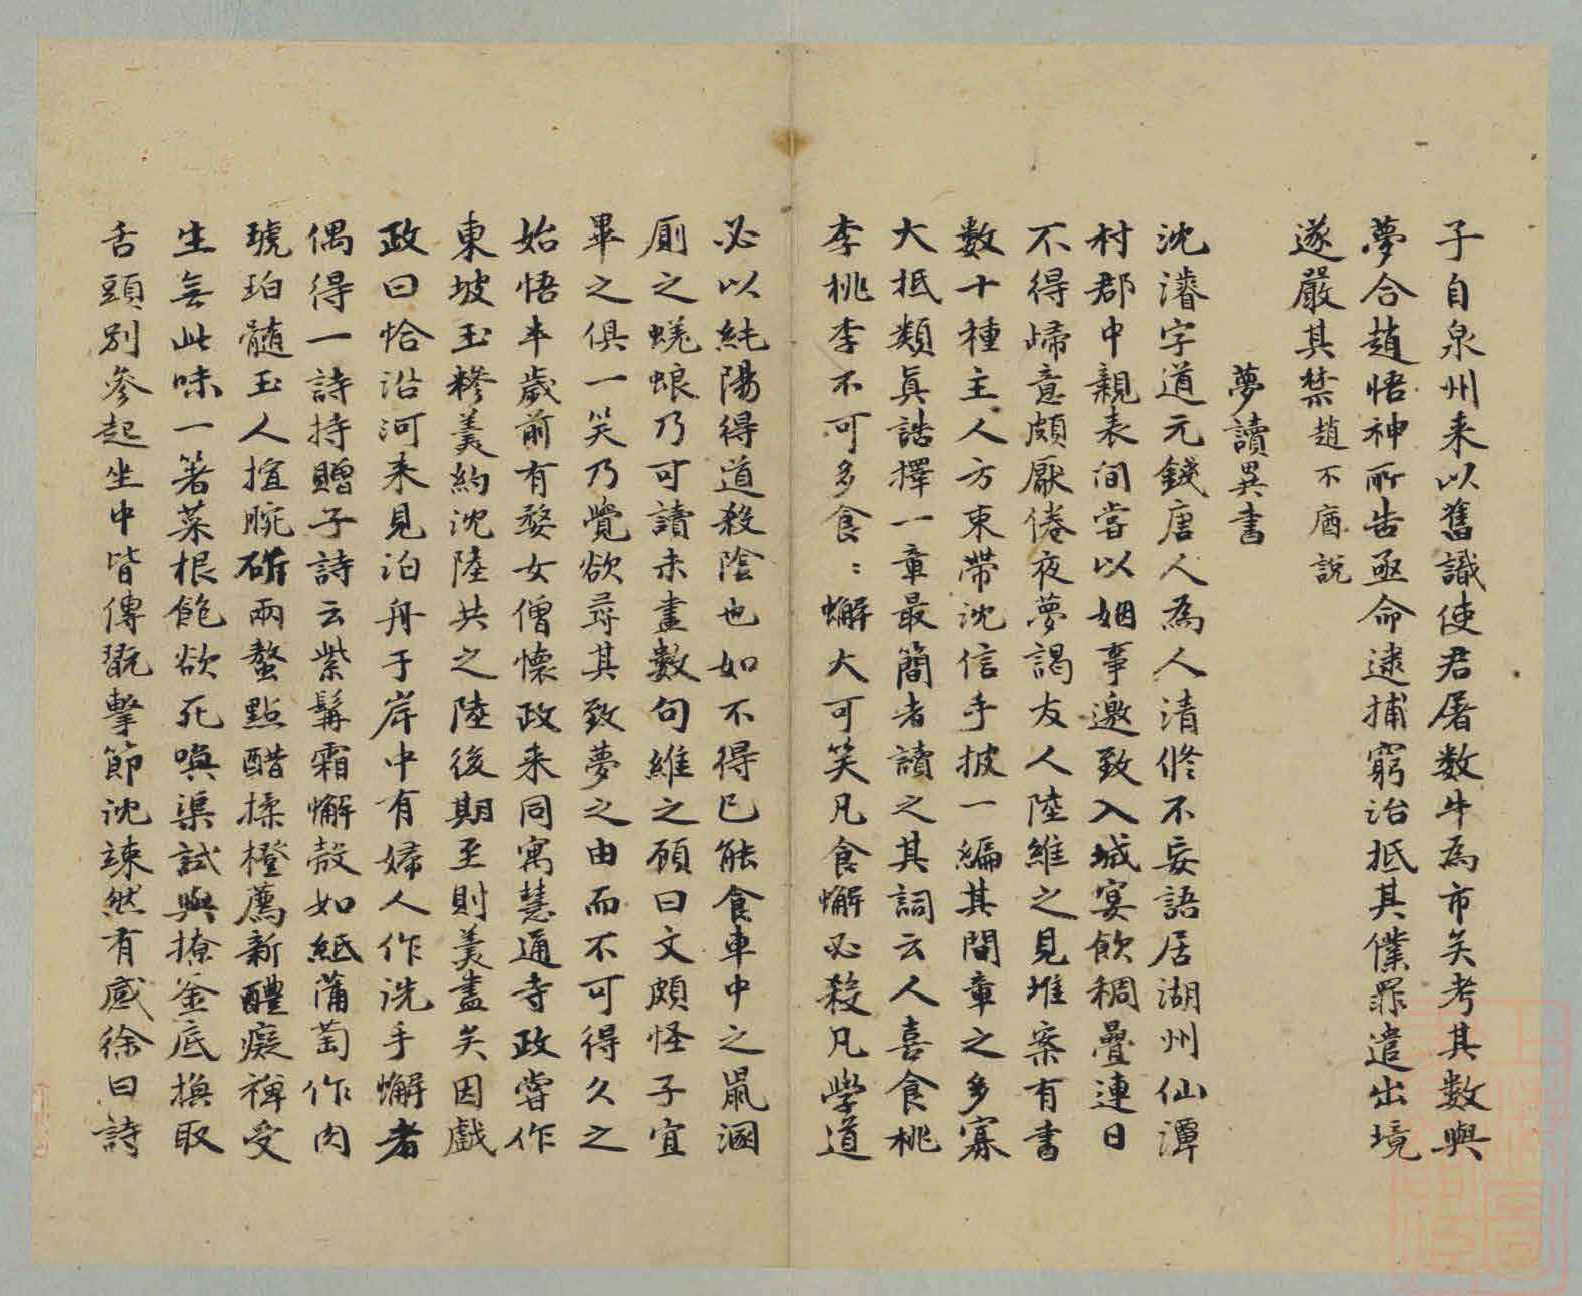 子自泉州来以舊識使君屠数牛為市矣考其數與
夢合趙悟神所告亟命逮捕窮治抵其僕罪遣出境
遂嚴其禁趙不庮説
夢讀異書
沈濬字道元錢唐人為人清修不妄語居湖州仙潭
村郡中親表间嘗以姻事邀致入城宴飲稠疊連日
不得歸意頗厭倦夜夢謁友人陸維之見堆案有書
数十種主人方束帶沈信手披一編其間章之多寡
大抵類真誥擇一章最簡者讀之其詞云人喜食桃
李桃李不可多食：蠏大可笑凡食蠏必殺凡学道
必以純陽得道殺陰也如不得已能食車中之鼠溷
厠之蜣蜋乃可讀未盡數句維之顧曰文頗怪子宜
畢之俱一笑乃覺欲尋其致夢之由而不可得久之
始悟半歲前有婺女僧懷政来同寓慧通寺政嘗作
東坡玉糝羹約沈陸共之陸後期至則羹盡矣因戲
政曰恰沿河来見泊舟于岸中有婦人作洗手蠏者
偶得一詩持贈子詩云紫髯霜蠏殼如紙蒲萄作肉
琥珀髓玉人揎腕斫兩螯點醋揉橙薦新醴癡禅受
生無此味一箸菜根飽欲死喚渠試與撩釜底換取
舌頭别參起坐中皆傳翫擊節沈竦然有感徐曰詩